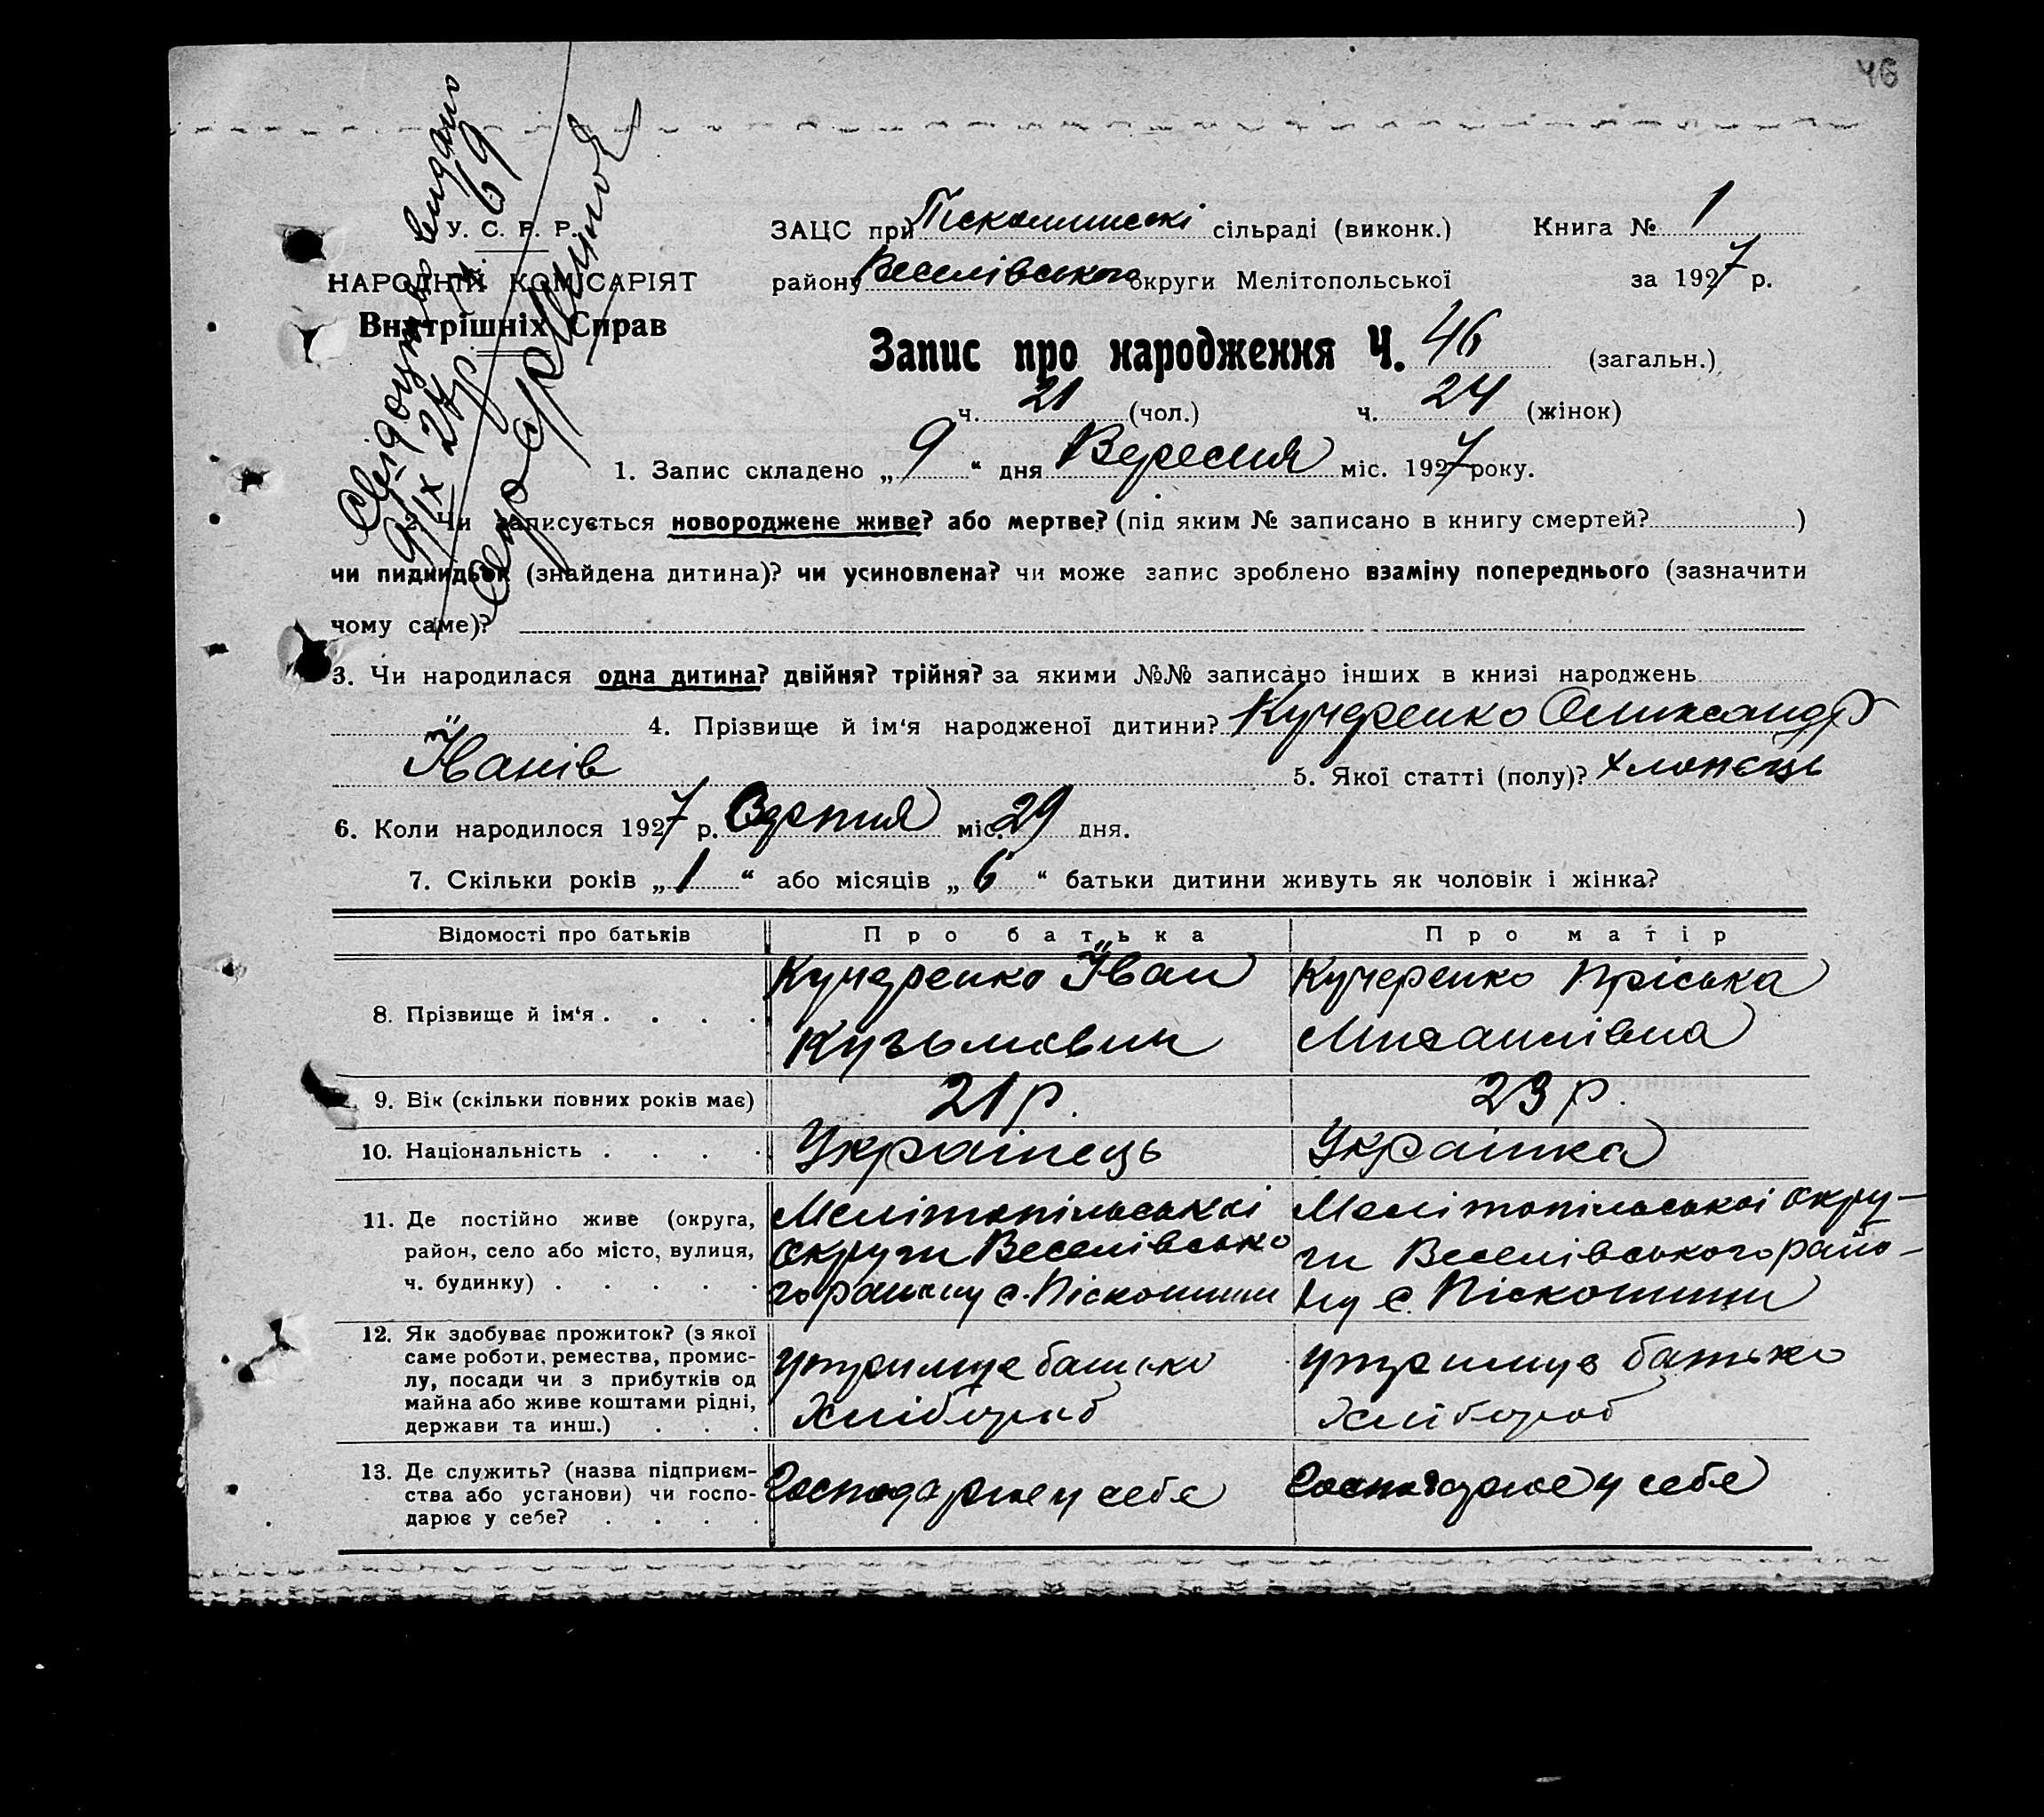 46
Свідоцтво видано
9/IX 27 р. ч. 69
Секр.
У. С. Р. Р.
НАРОДНІЙ КОМІСАРІЯТ
Внутрішніх Справ
ЗАЦС при Пескошинські сільраді (виконк.) Книга № 1
району Веселівського округи Мелітопольської за 1927 р.
Запис про народження Ч. 46 (загальн.)
ч. 21 (чол.) ч. 24 (жінок)
1. Запис складено „ 9 “ дня Вересня міс. 1927 року.
2. Чи записується новороджене живе? або мертве? (під яким № записано в книгу смертей? )
чи пидкидьок (знайдена дитина)? чи усиновлена? чи може запис зроблено взаміну попереднього (зазначити
чому саме)?
3. Чи народилася одна дитина? двійня? трійня? за якими №№ записано інших в книзі народжень
4. Прізвище й ім‘я народженої дитини? Кучеренко Олександр
Їванів 5. Якої статті (полу)? хлопєць
6. Коли народилося 1927 р. Серпня міс. 29 дня.
7. Скільки років „ 1 “ або місяців „ 6 “ батьки дитини живуть як чоловік і жінка?
Відомості про батьків Про батька Про матір
8. Прізвище й ім‘я . . . .
Кучеренко Їван
Кузьмович
Кучеренко Пріська
Михайлівна
9. Вік (скільки повних років має) 21 р. 23 р.
10. Національність . . . . Українець Українка
11. Де постійно живе (округа,
район, село або місто, вулиця,
ч. будинку) . . . . .
Мелітопільської
округи Веселівсько
го району с. Піскошини
Мелітопільської окру-
ги Веселівського райо-
ну с. Піскошини
12. Як здобуває прожиток? (з якої
саме роботи, ремества, промис-
лу, посади чи з прибутків од
майна або живе коштами рідні,
держави та инш.) . . .
утримує батько
Хлібороб
утримує батько
Хлібороб
13. Де служить? (назва підприєм-
ства або установи) чи госпо-
дарює у себе? . . . .
Господарює у себе
Господарює у себе